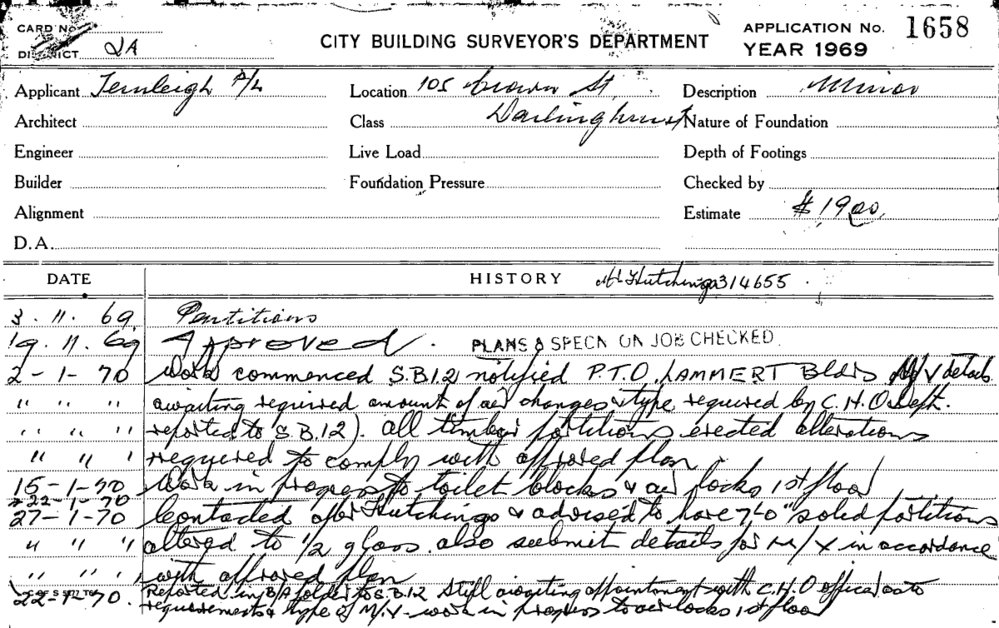 CARD No
DISTRICT 2A
CITY BUILDING SURVEYOR'S DEPARTMENT
APPLICATION No. 1658
YEAR 1969
Applicant Ternleigh P/L Location 105 Crown St, Description Minor
Architect Class Darlinghurst Nature of Foundation
Engineer Live Load Depth of Footings
Builder Foundation Pressure Checked by
Alignment Estimate $1900.
D.A.
DATE HISTORY Mr Hutchings 314655
3. 11. 69 Partitions
19. 11. 69 Approved. PLANS & SPECN ON JOB CHECKED.
2-1-70 Work commenced S.B.12 notified P.T.O. LAMMERT Bldrs M/V details
" " " awaiting required amount of air changes & type required by C.H.O Dept.
" " " reported to S.B.12). all timber partitions erected alterations
" " " required to comply with approved plan
15-1-70 Work in progress to toilet blocks & air locks 1st floor
22-1-70
27-1-70 Contacted Mr Hutchings & advised to have 7'0" solid partitions
" " " altered to 1/2 glass. also submit details for M/V in accordance
" " " with approved plan
22-1-70. Reported in B/A folder to S.B.12 still awaiting appointment with C.H.O officer as to
requirements & type of M.V. work in progress to air locks 1st floor